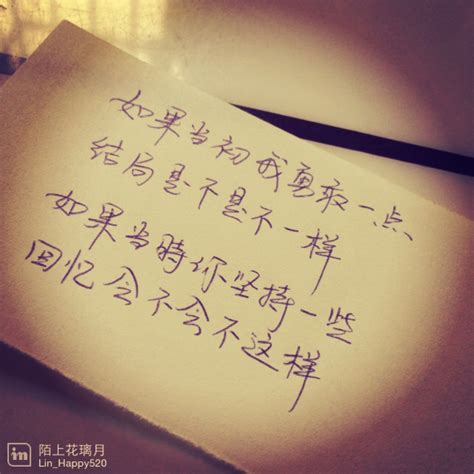 如果当初我勇敢一点
结局是不是不一样
如果当時你坚持一些
回忆会不会不这样
in 陌上花璃月
Lin_Happy520